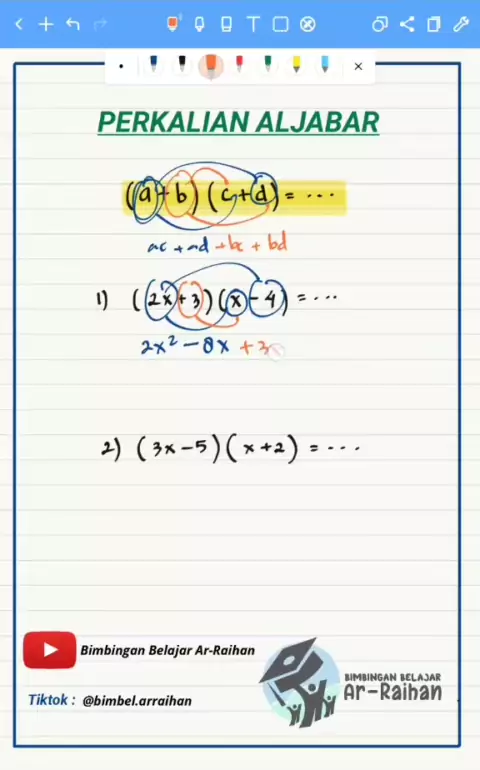 PERKALIAN ALJABAR
(a+b)(c+d) = ...
ac + ad + bc + bd
1) (2x+3)(x-4) = ...
2x² - 8x + 3
2) (3x-5)(x+2) = ...
Bimbingan Belajar Ar-Raihan
BIMBINGAN BELAJAR
Ar-Raihan
Tiktok : @bimbel.arraihan